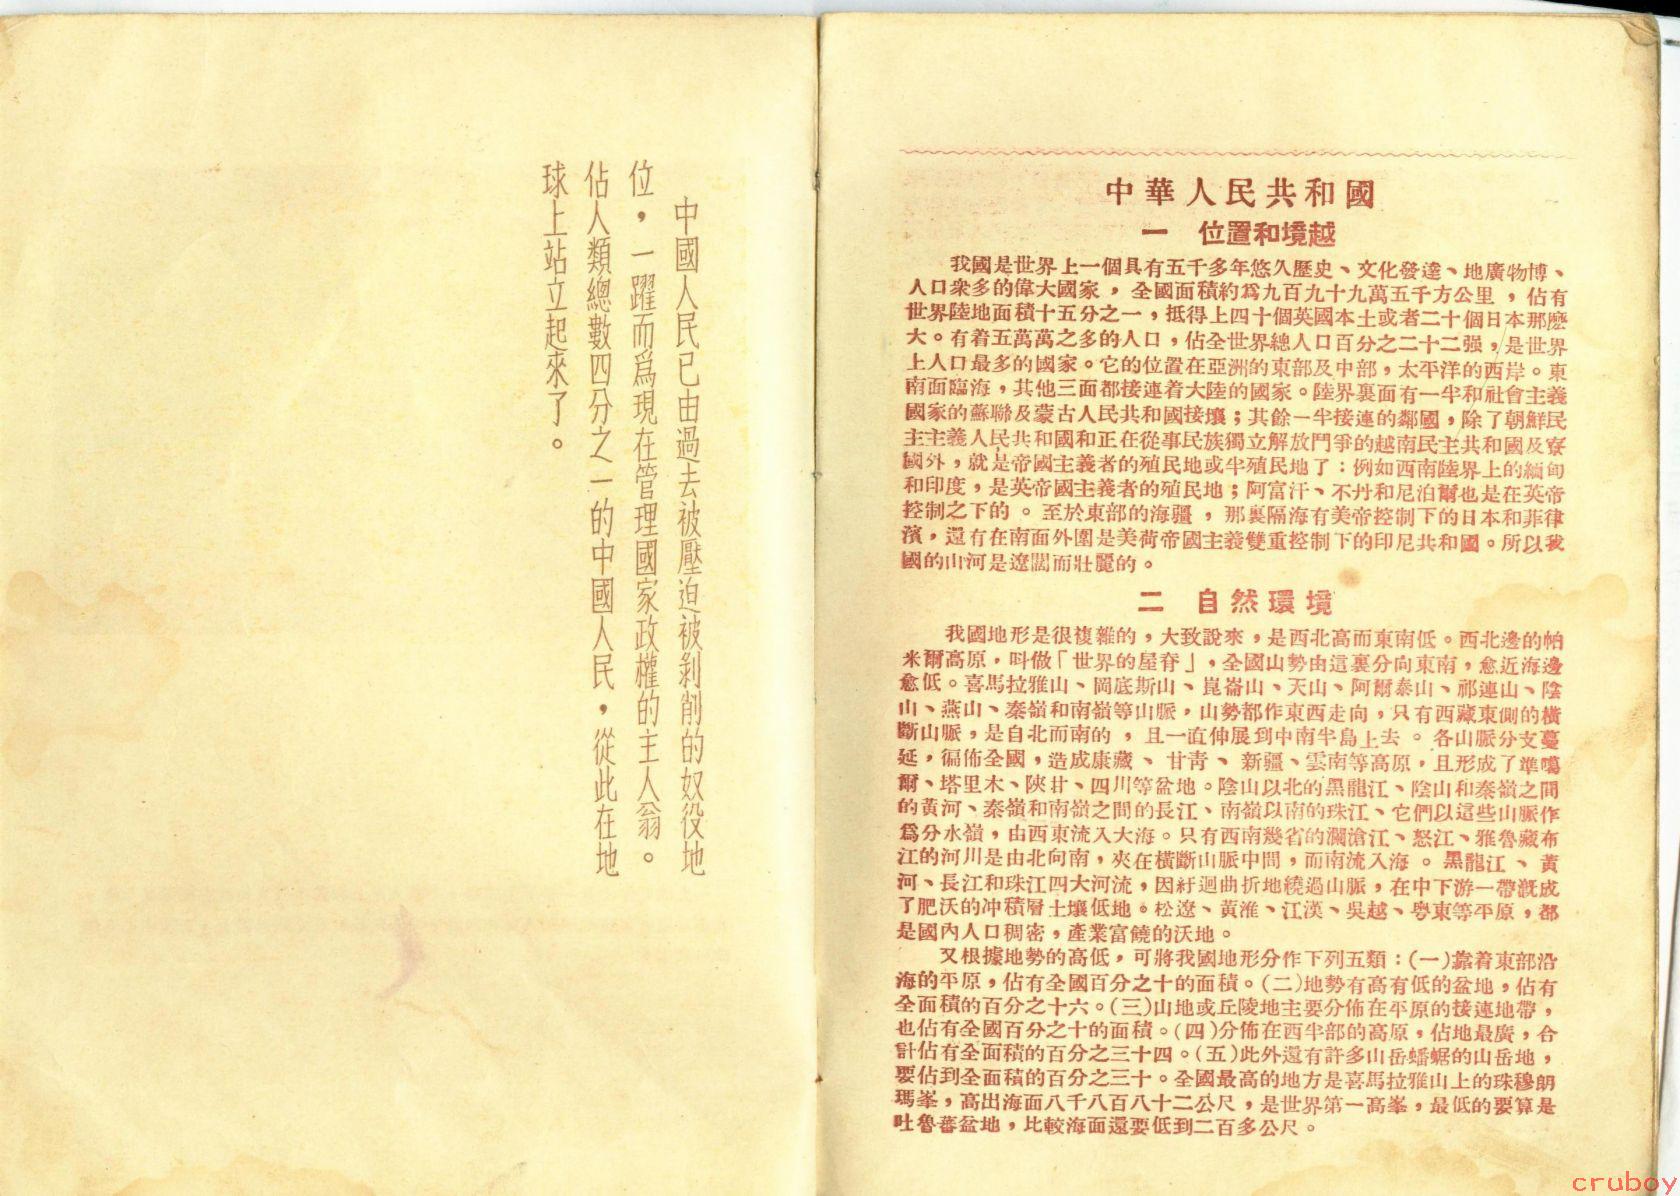 中國人民已由過去被壓迫被剥削的奴役地
位，一躍而爲現在管理國家政權的主人翁。
佔人類總數四分之一的中國人民，從此在地
球上站立起來了。
中華人民共和國
一　位置和境越
我國是世界上一個具有五千多年悠久歷史、文化發達、地廣物博、
人口衆多的偉大國家，全國面積約爲九百九十九萬五千方公里，佔有
世界陸地面積十五分之一，抵得上四十個英國本土或者二十個日本那麼
大。有着五萬萬之多的人口，佔全世界總人口百分之二十二强，是世界
上人口最多的國家。它的位置在亞洲的東部及中部，太平洋的西岸。東
南面臨海，其他三面都接連着大陸的國家。陸界裏面有一半和社會主義
國家的蘇聯及蒙古人民共和國接壤；其餘一半接連的鄰國，除了朝鮮民
主主義人民共和國和正在從事民族獨立解放鬥爭的越南民主共和國及寮
國外，就是帝國主義者的殖民地或半殖民地了：例如西南陸界上的緬甸
和印度，是英帝國主義者的殖民地；阿富汗、不丹和尼泊爾也是在英帝
控制之下的。至於東部的海疆，那裏隔海有美帝控制下的日本和菲律
濱，還有在南面外圍是美荷帝國主義雙重控制下的印尼共和國。所以我
國的山河是遼闊而壯麗的。
二　自然環境
我國地形是很複雜的，大致說來，是西北高而東南低。西北邊的帕
米爾高原，叫做「世界的屋脊」，全國山勢由這裏分向東南，愈近海邊
愈低。喜馬拉雅山、岡底斯山、崑崙山、天山、阿爾泰山、祁連山、陰
山、燕山、秦嶺和南嶺等山脈，山勢都作東西走向，只有西藏東側的橫
斷山脈，是自北而南的，且一直伸展到中南半島上去。各山脈分支蔓
延，徧佈全國，造成康藏、甘青、新疆、雲南等高原，且形成了準噶
爾、塔里木、陝甘、四川等盆地。陰山以北的黑龍江、陰山和秦嶺之間
的黃河、秦嶺和南嶺之間的長江、南嶺以南的珠江、它們以這些山脈作
爲分水嶺，由西東流入大海。只有西南幾省的瀾滄江、怒江、雅魯藏布
江的河川是由北向南，夾在橫斷山脈中間，而南流入海。黑龍江、黃
河、長江和珠江四大河流，因紆迴曲折地繞過山脈，在中下游一帶漑成
了肥沃的冲積層土壤低地。松遼、黃淮、江漢、吳越、粤東等平原，都
是國內人口稠密，產業富饒的沃地。
又根據地勢的高低，可將我國地形分作下列五類：(一)靠着東部沿
海的平原，佔有全國百分之十的面積。(二)地勢有高有低的盆地，佔有
全面積的百分之十六。(三)山地或丘陵地主要分佈在平原的接連地帶，
也佔有全國百分之十的面積。(四)分佈在西半部的高原，佔地最廣，合
計佔有全面積的百分之三十四。(五)此外還有許多山岳蟠蜛的山岳地，
要佔到全面積的百分之三十。全國最高的地方是喜馬拉雅山上的珠穆朗
瑪峯，高出海面八千八百八十二公尺，是世界第一高峯，最低的要算是
吐魯蕃盆地，比較海面還要低到二百多公尺。
cruboy